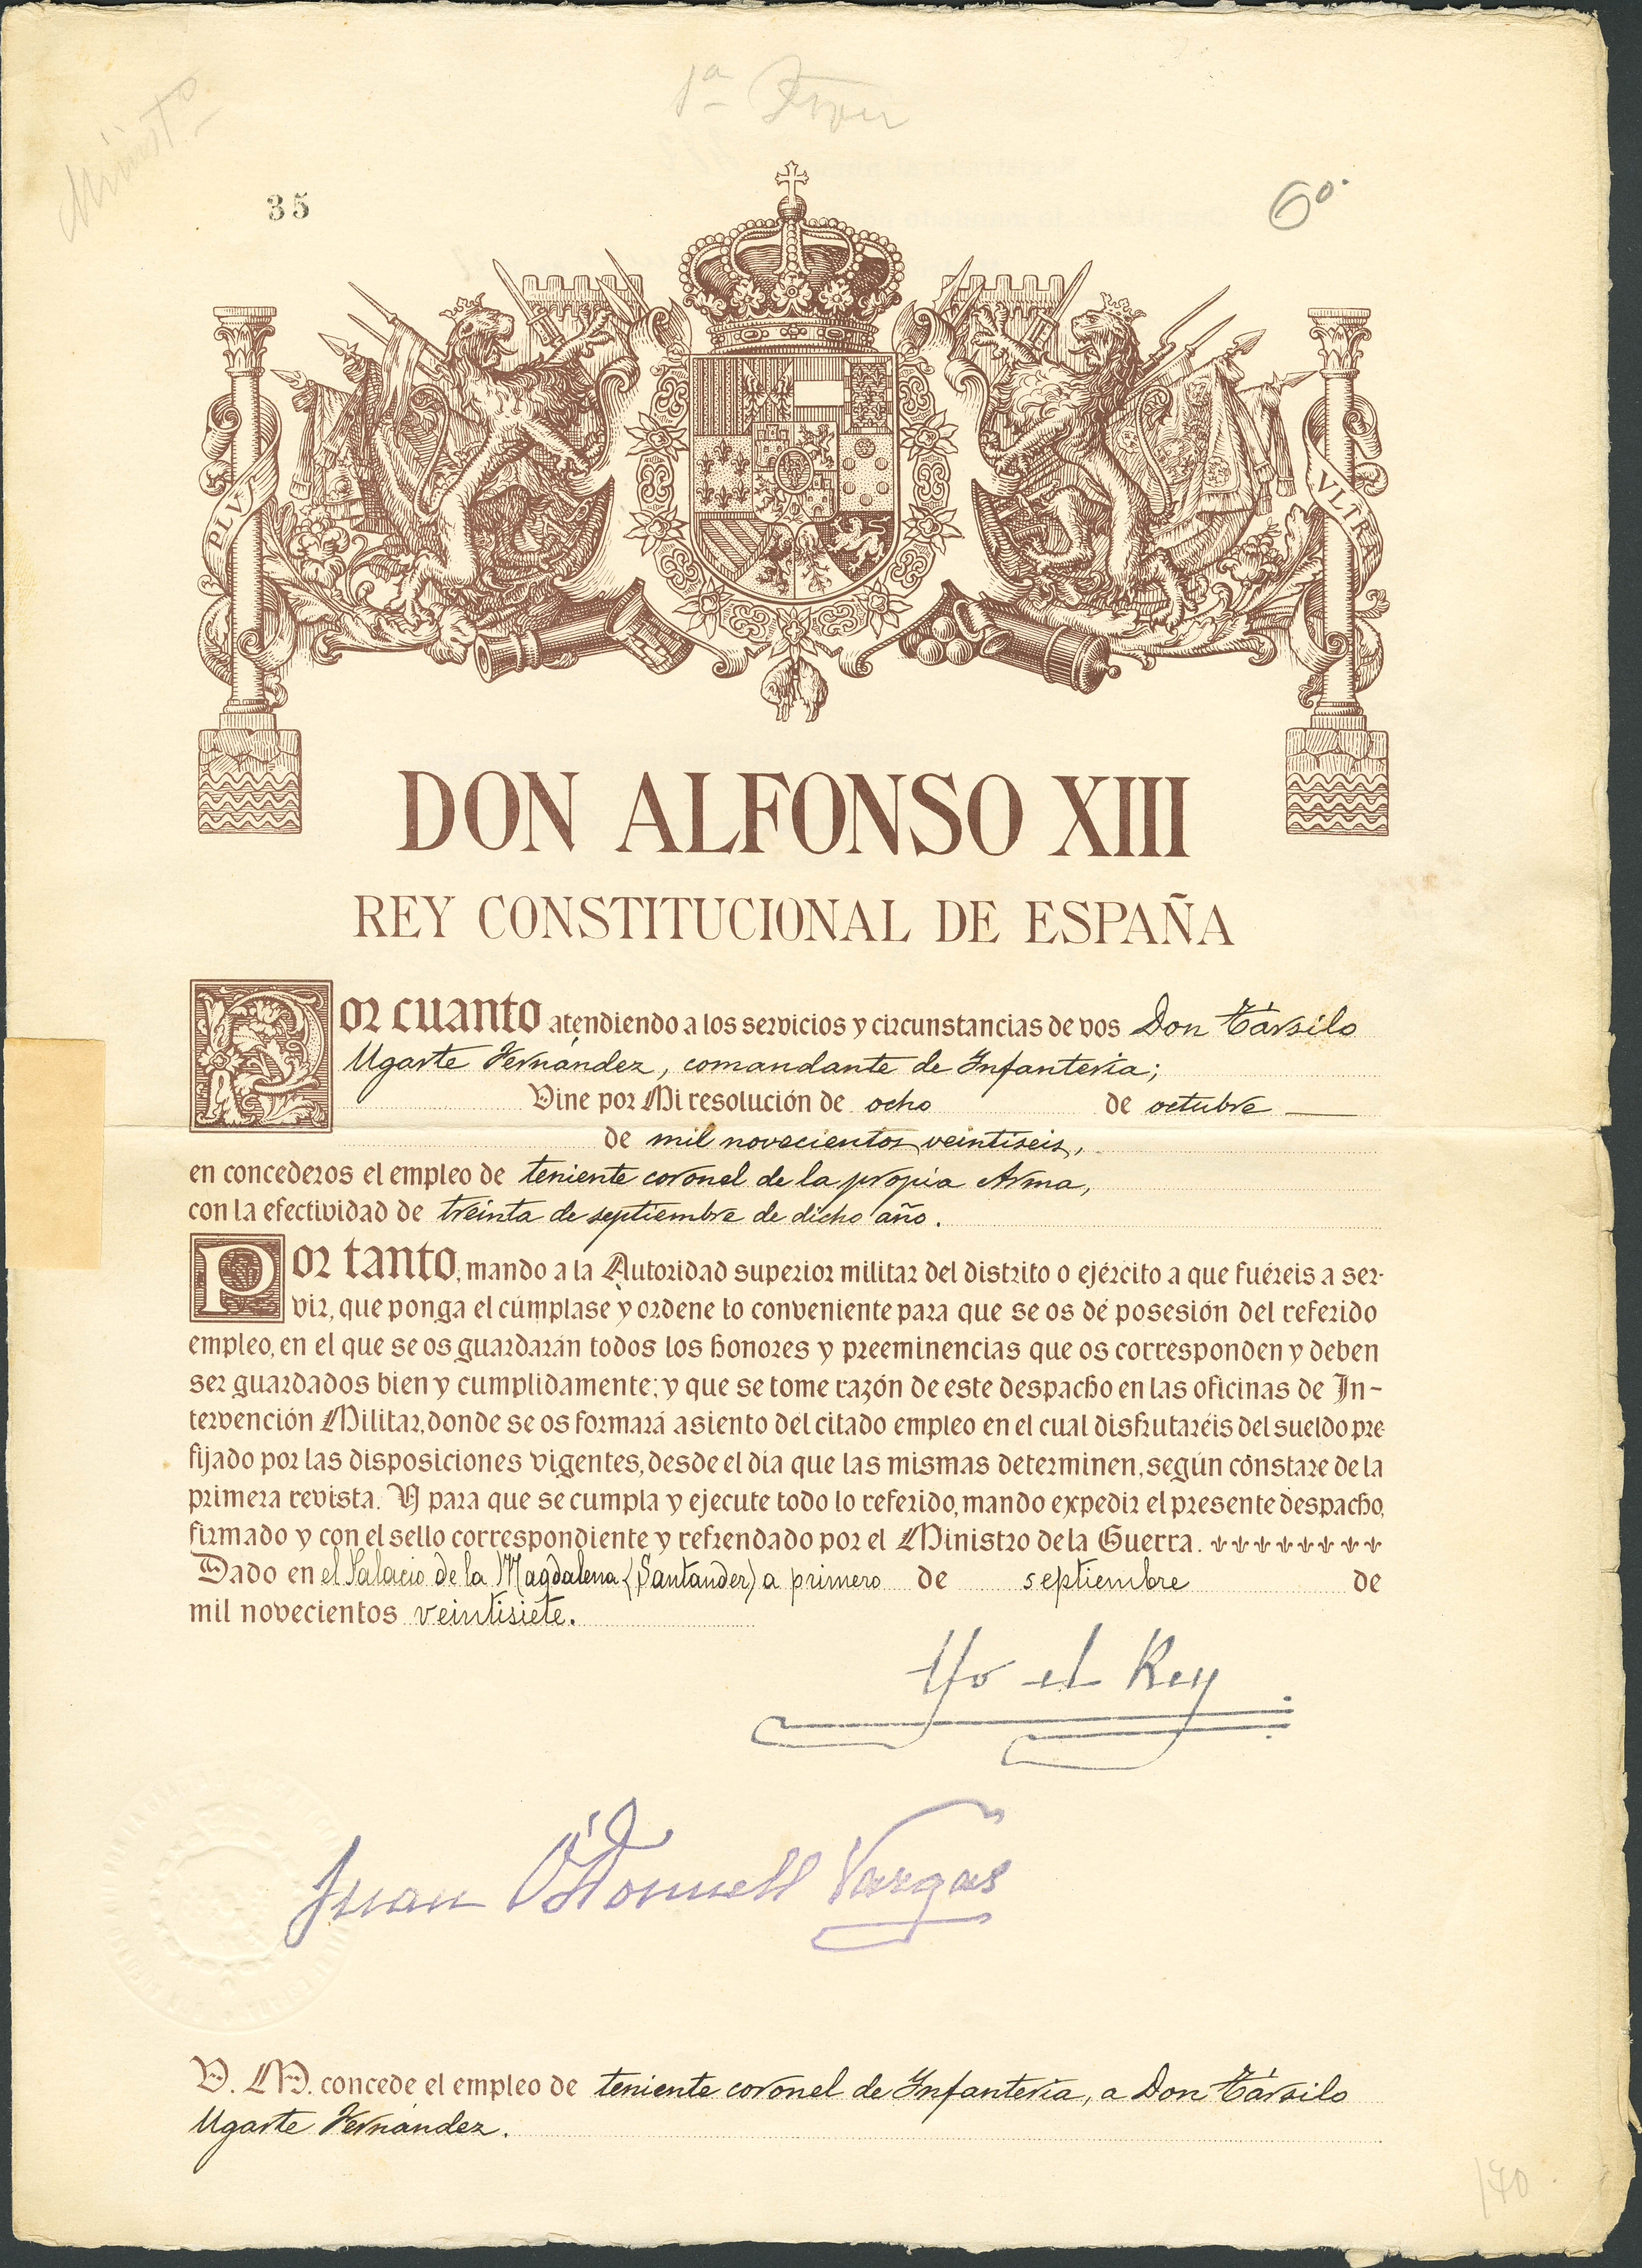 1ª
Minist.º
35
6º
PLVS
VLTRA
DON ALFONSO XIII
REY CONSTITUCIONAL DE ESPAÑA
Por cuanto atendiendo a los servicios y circunstancias de vos Don Társilo
Ugarte Fernández, comandante de Infantería;
Vine por Mi resolución de ocho de octubre
de mil novecientos veintiseis,
en concederos el empleo de teniente coronel de la propia Arma,
con la efectividad de treinta de septiembre de dicho año.
Por tanto, mando a la Autoridad superior militar del distrito o ejército a que fuéreis a ser-
vir, que ponga el cúmplase y ordene lo conveniente para que se os dé posesión del referido
empleo, en el que se os guardarán todos los honores y preeminencias que os corresponden y deben
ser guardados bien y cumplidamente; y que se tome razón de este despacho en las oficinas de In-
tervención Militar, donde se os formará asiento del citado empleo en el cual disfrutaréis del sueldo pre-
fijado por las disposiciones vigentes, desde el día que las mismas determinen, según constare de la
primera revista. Y para que se cumpla y ejecute todo lo referido, mando expedir el presente despacho,
firmado y con el sello correspondiente y refrendado por el Ministro de la Guerra.
Dado en el Palacio de la Magdalena (Santander) a primero de septiembre de
mil novecientos veintisiete.
Yo el Rey
Juan O'Donnell Vargas
V. M. concede el empleo de teniente coronel de Infantería, a Don Társilo
Ugarte Fernández.
170